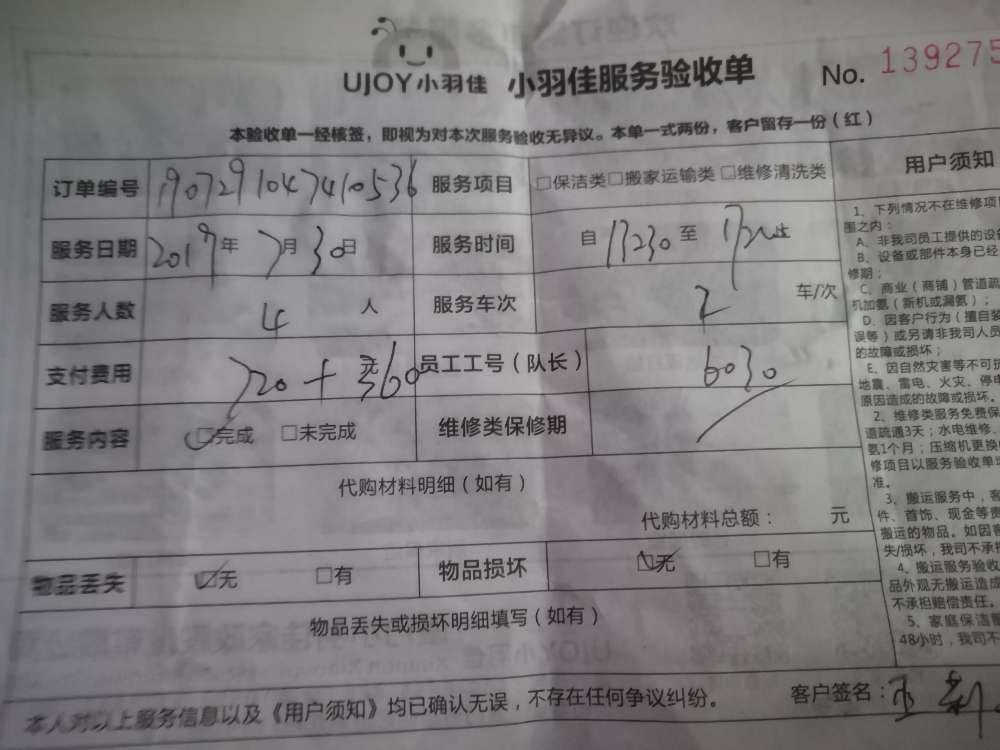 UJOY小羽佳 小羽佳服务验收单 No. 139275
本验收单一经核签，即视为对本次服务验收无异议。本单一式两份，客户留存一份（红）
订单编号 190729104741０536 服务项目 □保洁类□搬家运输类 □维修清洗类 用户须知
服务日期 2019年 7月 30日 服务时间 自 至
服务人数 4 人 服务车次 2 车/次
支付费用 720 + 360 员工工号（队长） 6030
服务内容 □完成 □未完成 维修类保修期
代购材料明细（如有）
代购材料总额： 元
物品丢失 □无 □有 物品损坏 □无 □有
物品丢失或损坏明细填写（如有）
本人对以上服务信息以及《用户须知》均已确认无误，不存在任何争议纠纷。 客户签名：
1、下列情况不在维修项
围之内：
A、非我司员工提供的设备
B、设备或部件本身已经
修期；
C、商业（商铺）管道疏
机加氨（新机或漏氨）；
D、因客户行为（擅自装
误等）或另请非我司人员
的故障或损坏；
E、因自然灾害等不可抗
地震、雷电、火灾、停电
原因造成的故障或损坏。
2、维修类服务免费保
道疏通3天；水电维修、
氨1个月；压缩机更换
修项目以服务验收单
准。
3、搬运服务中，客
件、首饰、现金等贵
搬运的物品。如因
失/损坏，我司不承担
4、搬运服务验收
品外观无搬运造成
不承担赔偿责任。
5、家庭保洁服
48小时，我司不